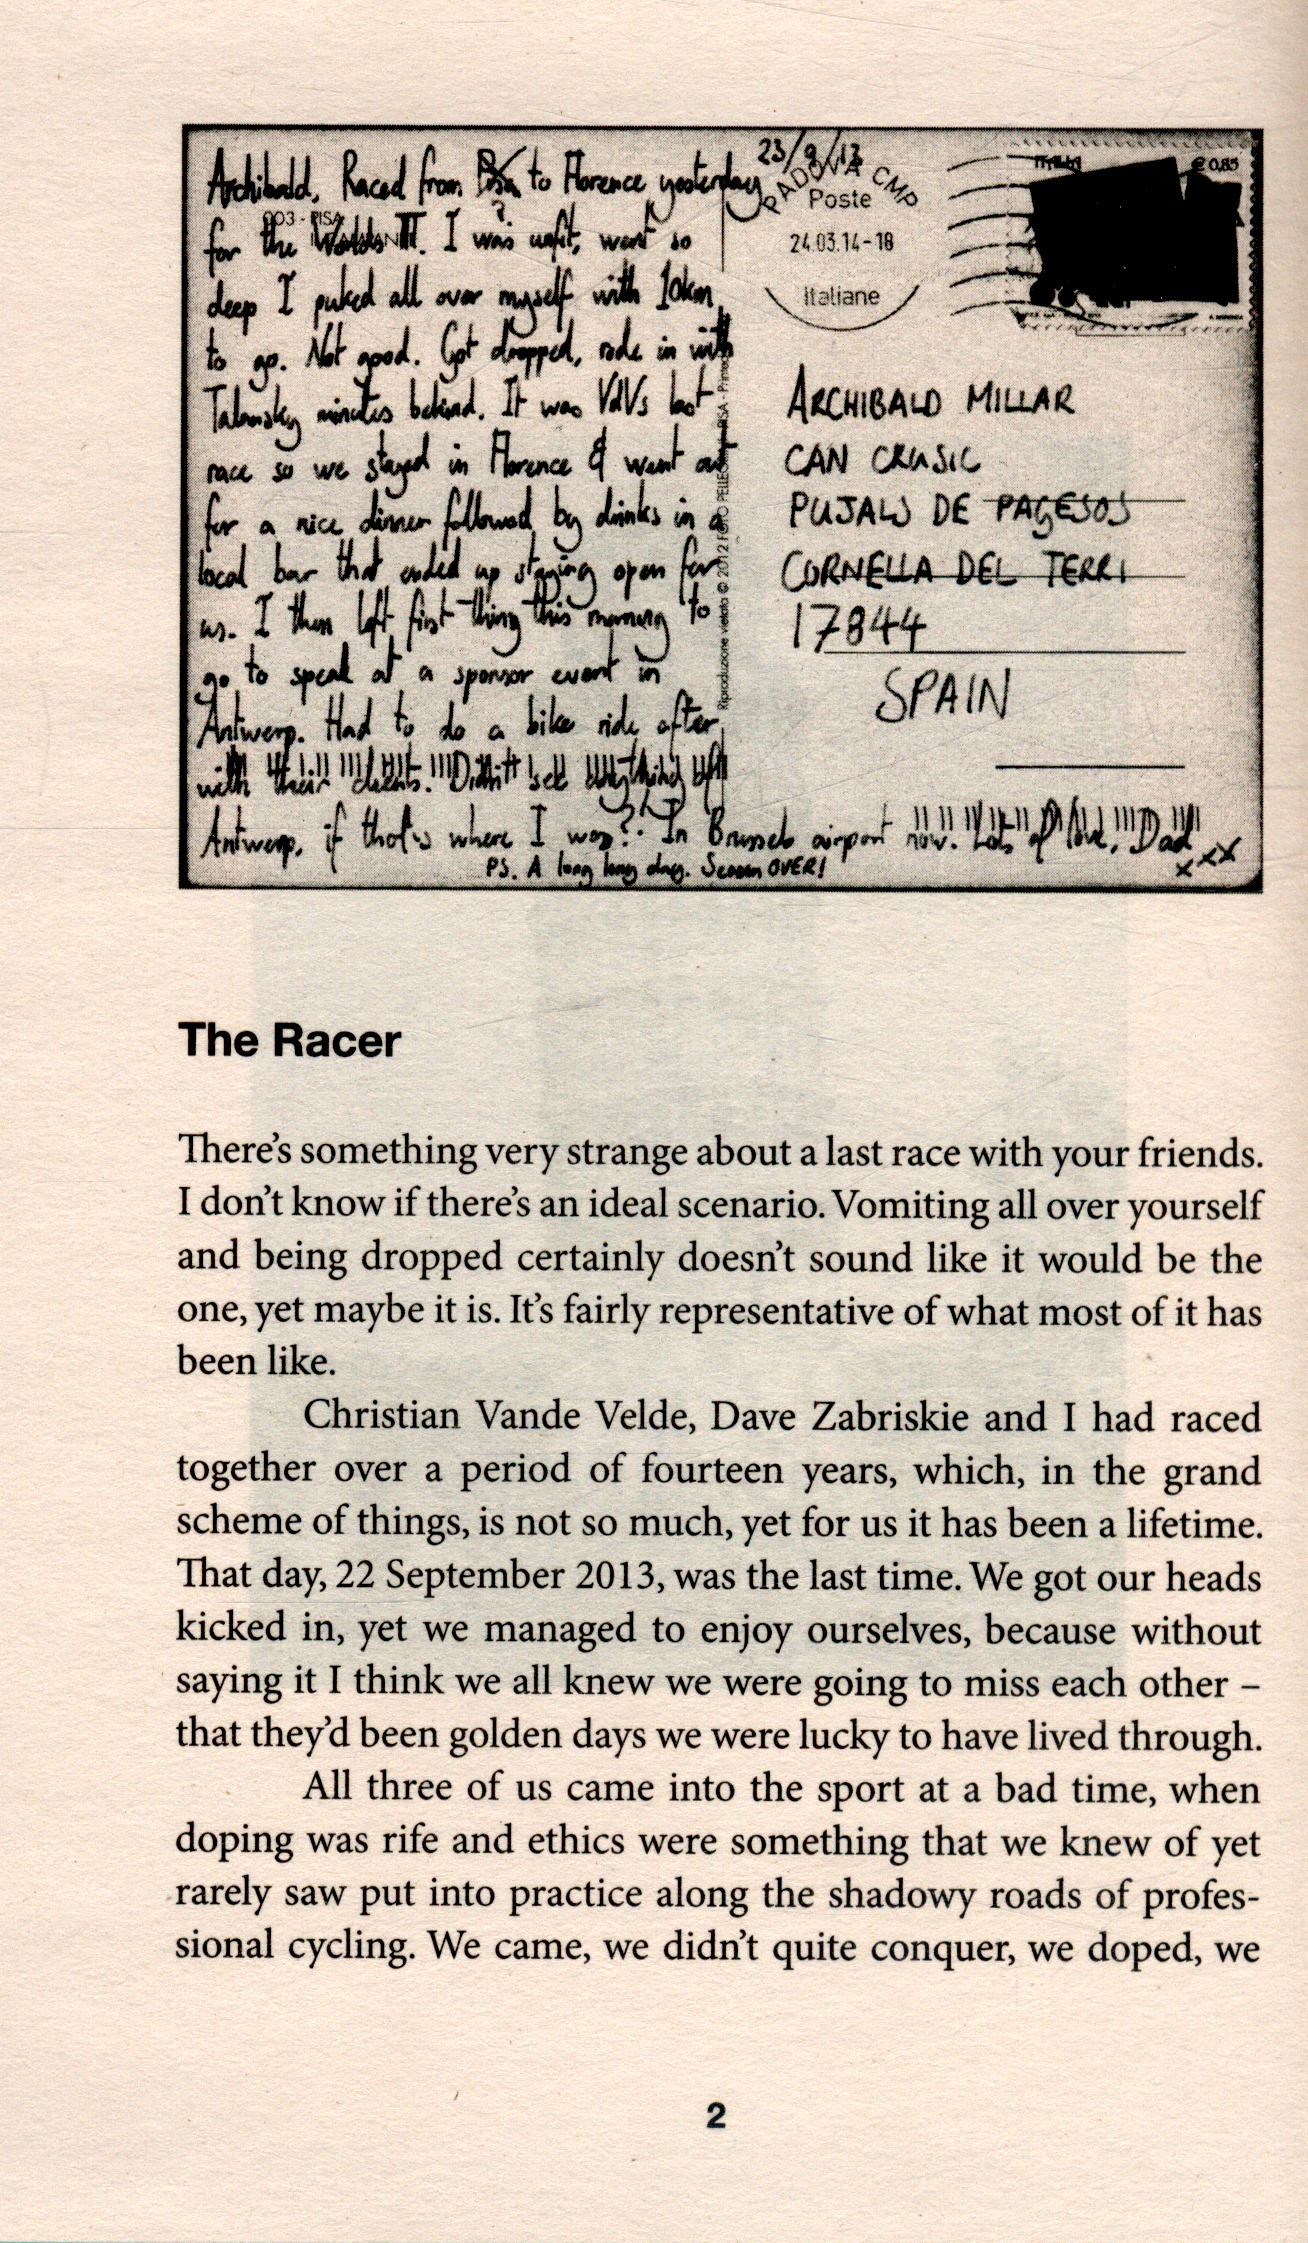 Archibald, Raced from Pisa to Florence yesterday
?
for the Worlds TTT. I was unfit, went so
deep I puked all over myself with 10km
to go. Not good. Got dropped, rode in with
Talansky minutes behind. It was VdVs last
race so we stayed in Florence & went out
for a nice dinner followed by drinks in a
local bar that ended up staying open for
us. I then left first thing this morning to
go to speak at a sponsor event in
Antwerp. Had to do a bike ride after
with their clients. Didn't see anything of
Antwerp, if that's where I was? In Brussels airport now. Lots of love, Dad
xxx
PS. A long long day. Season OVER!
003 - PISA
Riproduzione vietata © 2012
23/9/13
PADOVA CMP
Poste
24.03.14-18
Italiane
ITALIA
€ 0,85
ARCHIBALD MILLAR
CAN CRUSIC
PUJALS DE PAGESOS
CORNELLA DEL TERRI
17844
SPAIN
The Racer
There's something very strange about a last race with your friends.
I don't know if there's an ideal scenario. Vomiting all over yourself
and being dropped certainly doesn't sound like it would be the
one, yet maybe it is. It's fairly representative of what most of it has
been like.
Christian Vande Velde, Dave Zabriskie and I had raced
together over a period of fourteen years, which, in the grand
scheme of things, is not so much, yet for us it has been a lifetime.
That day, 22 September 2013, was the last time. We got our heads
kicked in, yet we managed to enjoy ourselves, because without
saying it I think we all knew we were going to miss each other –
that they'd been golden days we were lucky to have lived through.
All three of us came into the sport at a bad time, when
doping was rife and ethics were something that we knew of yet
rarely saw put into practice along the shadowy roads of profes-
sional cycling. We came, we didn't quite conquer, we doped, we
2